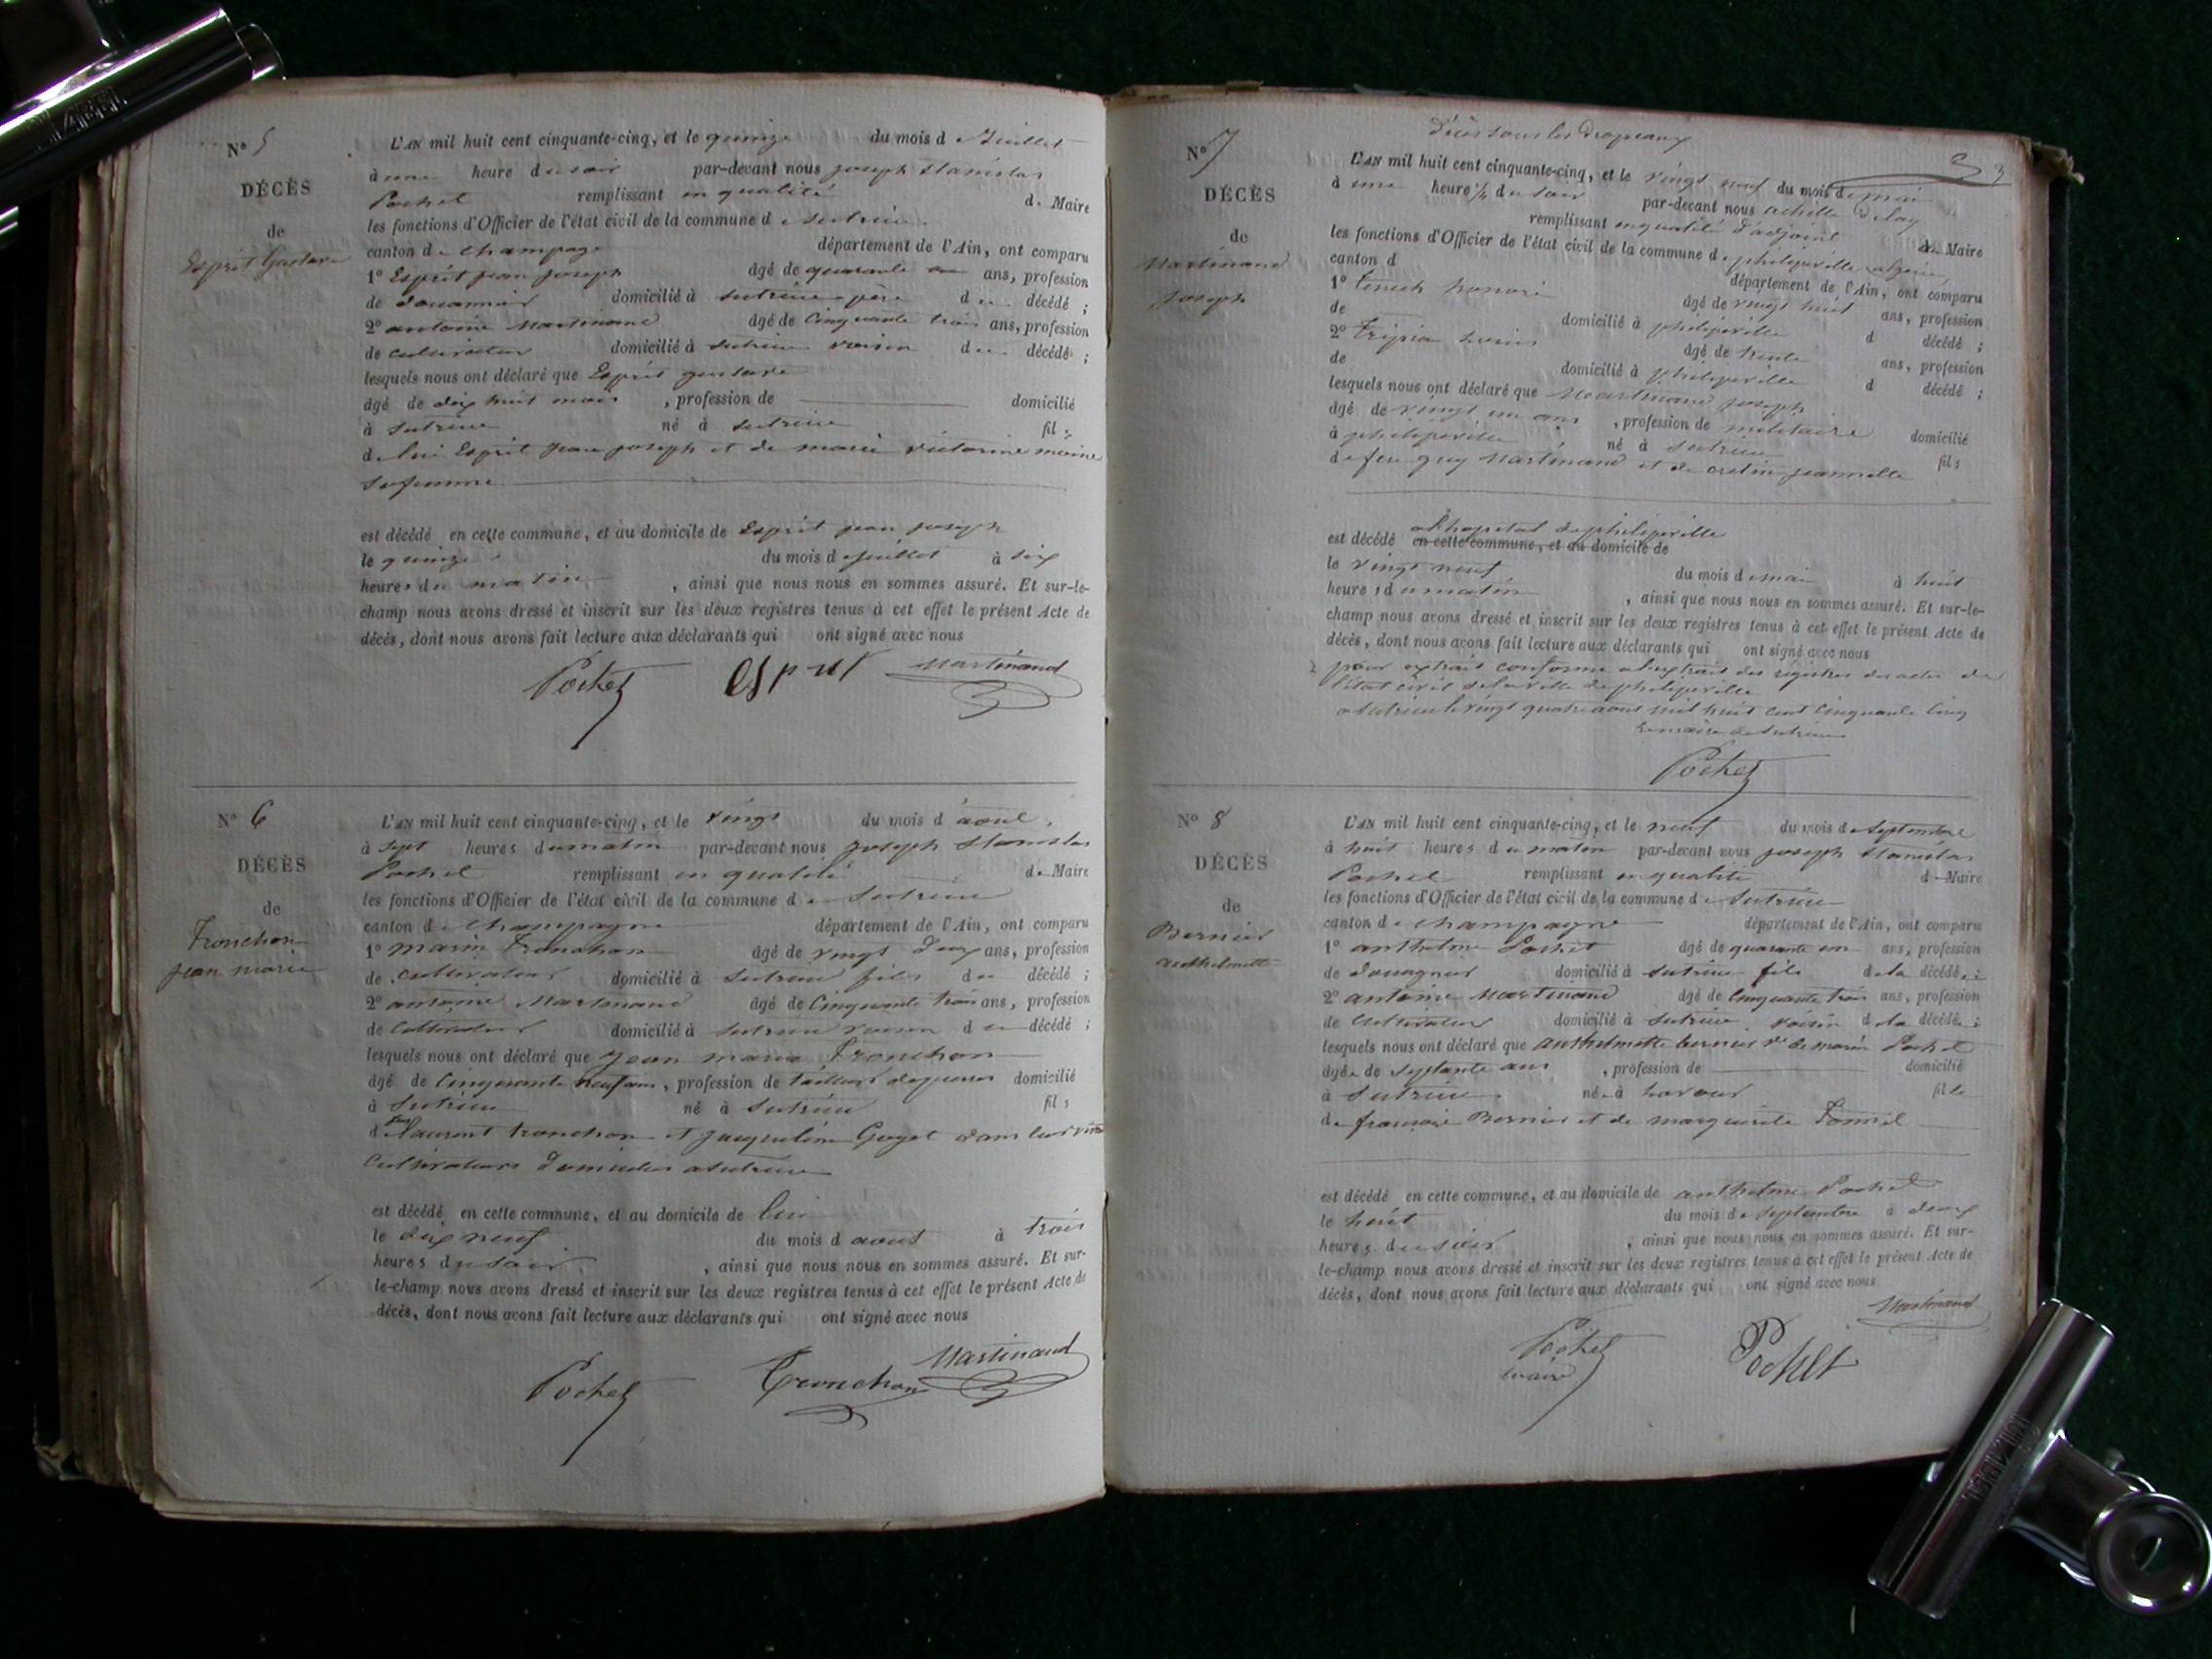 N° 5
DÉCÈS
de
Esprit Gustave
L'AN mil huit cent cinquante-cinq, et le quinze du mois d e Juillet
à une heure du soir par-devant nous joseph stanislas
Pochet remplissant en qualité de Maire
les fonctions d'Officier de l'état civil de la commune d e sutrieu
canton de champagne département de l'Ain, ont comparu
1° Esprit jean joseph âgé de quarante ans, profession
de douannier domicilié à sutrieu père du décédé ;
2° antoine Martinand âgé de Cinquante trois ans, profession
de cultivateur domicilié à sutrieu voisin du décédé ;
lesquels nous ont déclaré que Esprit gustave
âgé de dix huit mois , profession de domicilié
à sutrieu né à sutrieu fils
de lui Esprit jean joseph et de marie victorine moine
sa femme
est décédé en cette commune, et au domicile de Esprit jean joseph
le quinze du mois de juillet à six
heures du matin , ainsi que nous nous en sommes assuré. Et sur-le-
champ nous avons dressé et inscrit sur les deux registres tenus à cet effet le présent Acte de
décès, dont nous avons fait lecture aux déclarants qui ont signé avec nous
Pochet esprit Martinand
N° 6
DÉCÈS
de
Tronchon
jean marie
L'AN mil huit cent cinquante-cinq, et le vingt du mois d'aout
à sept heures du matin par-devant nous joseph stanislas
Pochet remplissant en qualité de Maire
les fonctions d'Officier de l'état civil de la commune de Sutrieu
canton de champagne département de l'Ain, ont comparu
1° marin Tronchon âgé de vingt deux ans, profession
de cultivateur domicilié à Sutrieu fils du décédé ;
2° antoine Martinand âgé de Cinquante trois ans, profession
de Cultivateur domicilié à sutrieu voisin du décédé ;
lesquels nous ont déclaré que jean marie Tronchon
âgé de Cinquante neuf ans, profession de tailleur de pierres domicilié
à Sutrieu né à sutrieu fils
de feu laurent tronchon et jacqueline Goyet
Cultivateurs domiciliés a sutrieu
est décédé en cette commune, et au domicile de lui
le dix neuf du mois d aout à trois
heures du soir , ainsi que nous nous en sommes assuré. Et sur-
le-champ nous avons dressé et inscrit sur les deux registres tenus à cet effet le présent Acte de
décès, dont nous avons fait lecture aux déclarants qui ont signé avec nous
Pochet Tronchon Martinand
Décès sous les Drapeaux
3
N° 7
DÉCÈS
de
Martinand
joseph
L'AN mil huit cent cinquante-cinq, et le vingt neuf du mois de mai
à une heure ½ du soir par-devant nous achille Delay
remplissant en qualité d'adjoint du Maire
les fonctions d'Officier de l'état civil de la commune de philipeville algérie
canton d département de l'Ain, ont comparu
1° honoré âgé de vingt huit ans, profession
de domicilié à philipeville d décédé ;
2° louis âgé de trente ans, profession
de domicilié à philipeville d décédé ;
lesquels nous ont déclaré que Martinand joseph
âgé de vingt un ans , profession de militaire domicilié
à philipeville né à sutrieu fils
de feu guy Martinand et de cretin jeannette
est décédé en cette commune, et au domicile de a l'hopital de philipeville
le vingt neuf du mois de mai à huit
heures du matin , ainsi que nous nous en sommes assuré. Et sur-le-
champ nous avons dressé et inscrit sur les deux registres tenus à cet effet le présent Acte de
décès, dont nous avons fait lecture aux déclarants qui ont signé avec nous
pour extrait conforme a l'extrait des régistres des actes de
l'état civil de la ville de philipeville
a sutrieu le vingt quatre aout mil huit cent cinquante cinq
Le maire de sutrieu
Pochet
N° 8
DÉCÈS
de
Bernier
anthelmette
L'AN mil huit cent cinquante-cinq, et le neuf du mois de septembre
à huit heures du matin par-devant nous joseph stanislas
Pochet remplissant en qualité de Maire
les fonctions d'Officier de l'état civil de la commune de Sutrieu
canton de champagne département de l'Ain, ont comparu
1° anthelme Pochet âgé de quarante un ans, profession
de domicilié à sutrieu fils de la décédée ;
2° antoine Martinand âgé de Cinquante trois ans, profession
de Cultivateur domicilié à sutrieu voisin de la décédée ;
lesquels nous ont déclaré que anthelmette bernier ve de marin Pochet
âgée de septante ans , profession de domicilié
à Sutrieu née à fille
de françois Bernier et de marguerite
est décédé en cette commune, et au domicile de anthelme Pochet
le huit du mois de septembre à deux
heures du soir , ainsi que nous nous en sommes assuré. Et sur-
le-champ nous avons dressé et inscrit sur les deux registres tenus à cet effet le présent Acte de
décès, dont nous avons fait lecture aux déclarants qui ont signé avec nous
Martinand
Pochet Pochet
maire